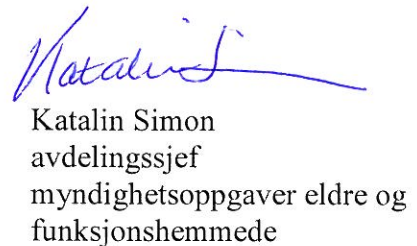 Katalin S
Katalin Simon
avdelingssjef
myndighetsoppgaver eldre og
funksjonshemmede